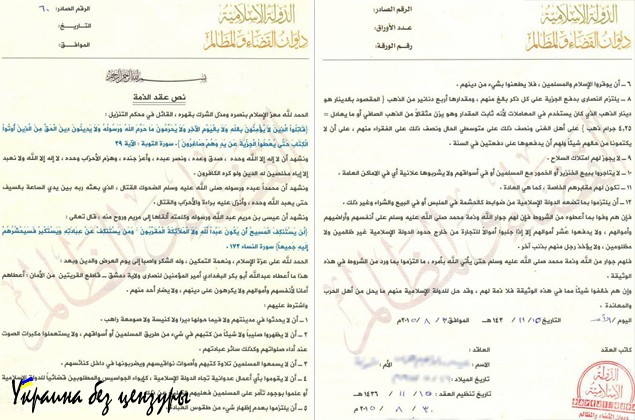 الدولة الإسلامية
ديوان القضاء والمظالم
الرقم الصادر: ٦٠
التاريخ:
الموافق:
بسم الله الرحمن الرحيم
نص عقد الذمة
الحمد لله معز الإسلام بنصره ومذل الشرك بقهره، القائل في محكم التنزيل:
(قاتلوا الذين لا يؤمنون بالله ولا باليوم الآخر ولا يحرمون ما حرم الله ورسوله ولا يدينون دين الحق من الذين أوتوا
الكتاب حتى يعطوا الجزية عن يد وهم صاغرون). سورة التوبة: الآية ٢٩
ونشهد أن لا إله إلا الله وحده، صدق وعده، ونصر عبده، وأعز جنده، وهزم الأحزاب وحده، لا إله إلا الله ولا نعبد
إلا إياه مخلصين له الدين ولو كره الكافرون.
ونشهد أن محمداً عبده ورسوله صلى الله عليه وسلم الضحوك القتال، الذي بعثه ربه بين يدي الساعة بالسيف
حتى يعبد الله وحده، وأنزل عليه براءة والأحزاب والقتال.
ونشهد أن عيسى بن مريم عبد الله ورسوله وكلمته ألقاها إلى مريم وروح منه، قال تعالى:
(لن يستنكف المسيح أن يكون عبداً لله ولا الملائكة المقربون. ومن يستنكف عن عبادته ويستكبر فسيحشرهم
إليه جميعاً) سورة النساء ١٧٢
الحمد لله على عزة الإسلام، ونعمة التمكين، وله الشكر واصباً إلى يوم العرض والدين وبعد:
هذا ما أعطاه عبدالله أبو بكر البغدادي أمير المؤمنين لنصارى ولاية دمشق - قاطع القريتين من الأمان: أعطاهم
أماناً لأنفسهم وأموالهم ولا يكرهون على دينهم، ولا يضار أحد منهم.
واشترط عليهم:
١- أن لا يحدثوا في مدينتهم ولا فيما حولها ديراً ولا كنيسة ولا صومعة راهب.
٢- أن لا يظهروا صليباً ولا شيئاً من كتبهم في شيء من طريق المسلمين أو أسواقهم، ولا يستعملوا مكبرات الصوت
عند أداء صلواتهم وكذلك سائر عباداتهم.
٣- أن لا يسمعوا المسلمين تلاوة كتبهم وأصوات نواقيسهم ويضربونها في داخل كنائسهم.
٤- أن لا يقوموا بأي أعمال عدوانية تجاه الدولة الإسلامية، كإيواء الجواسيس والمطلوبين
٥- أن يلتزموا بعدم إظهار شيء من طقوس العبادة
Украина без цензуры
الدولة الإسلامية
ديوان القضاء والمظالم
الرقم الصادر:
عدد الأوراق:
رقم الورقة:
٦- أن يوقروا الإسلام والمسلمين، فلا يطعنوا بشيء من دينهم.
٨- يلتزم النصارى بدفع الجزية على كل ذكر بالغ منهم، ومقدارها أربع دنانير من الذهب (المقصود بالدينار هو
دينار الذهب الذي كان يستخدم في المعاملات لأنه ثابت المقدار وهو يزن مثقالاً من الذهب الصافي أو ما يعادل =
٤,٢٥ جرام ذهب) على أهل الغنى ونصف ذلك على متوسطي الحال ونصف ذلك على الفقراء منهم، على أن لا
يكتمونا من مالهم شيئاً ولهم أن يدفعوها على دفعتين في السنة.
٩- لا يجوز لهم امتلاك السلاح.
١٠- لا يتاجروا ببيع الخنزير أو الخمور مع المسلمين أو في أسواقهم ولا يشربوها علانية أي في الأماكن العامة.
١١- تكون لهم مقابرهم الخاصة، كما هي العادة.
١٢- أن يلتزموا بما تضعه الدولة الإسلامية من ضوابط كالحشمة في الملبس أو في البيع والشراء وغير ذلك.
فإن هم وفوا بما أعطوه من الشروط فإن لهم جوار الله وذمة محمد صلى الله عليه وسلم على أنفسهم وأراضيهم
وأموالهم، ولا يدفعوا عشر أموالهم إلا إذا جلبوا أموالاً للتجارة من خارج حدود الدولة الإسلامية غير ظالمين ولا
مظلومين، ولا يؤخذ رجل منهم بذنب آخر.
فلهم جوار الله وذمة محمد صلى الله عليه وسلم حتى يأتي الله بأمره، ما التزموا بما ورد من الشروط في هذه
الوثيقة.
وإن هم خالفوا شيئاً مما في هذه الوثيقة فلا ذمة لهم، وقد حل للدولة الإسلامية منهم ما يحل من أهل الحرب
والمعاندة.
العاقد:
الكاتب
تاريخ الميلاد
تاريخ تنظيم العقد
الدولة الإسلامية